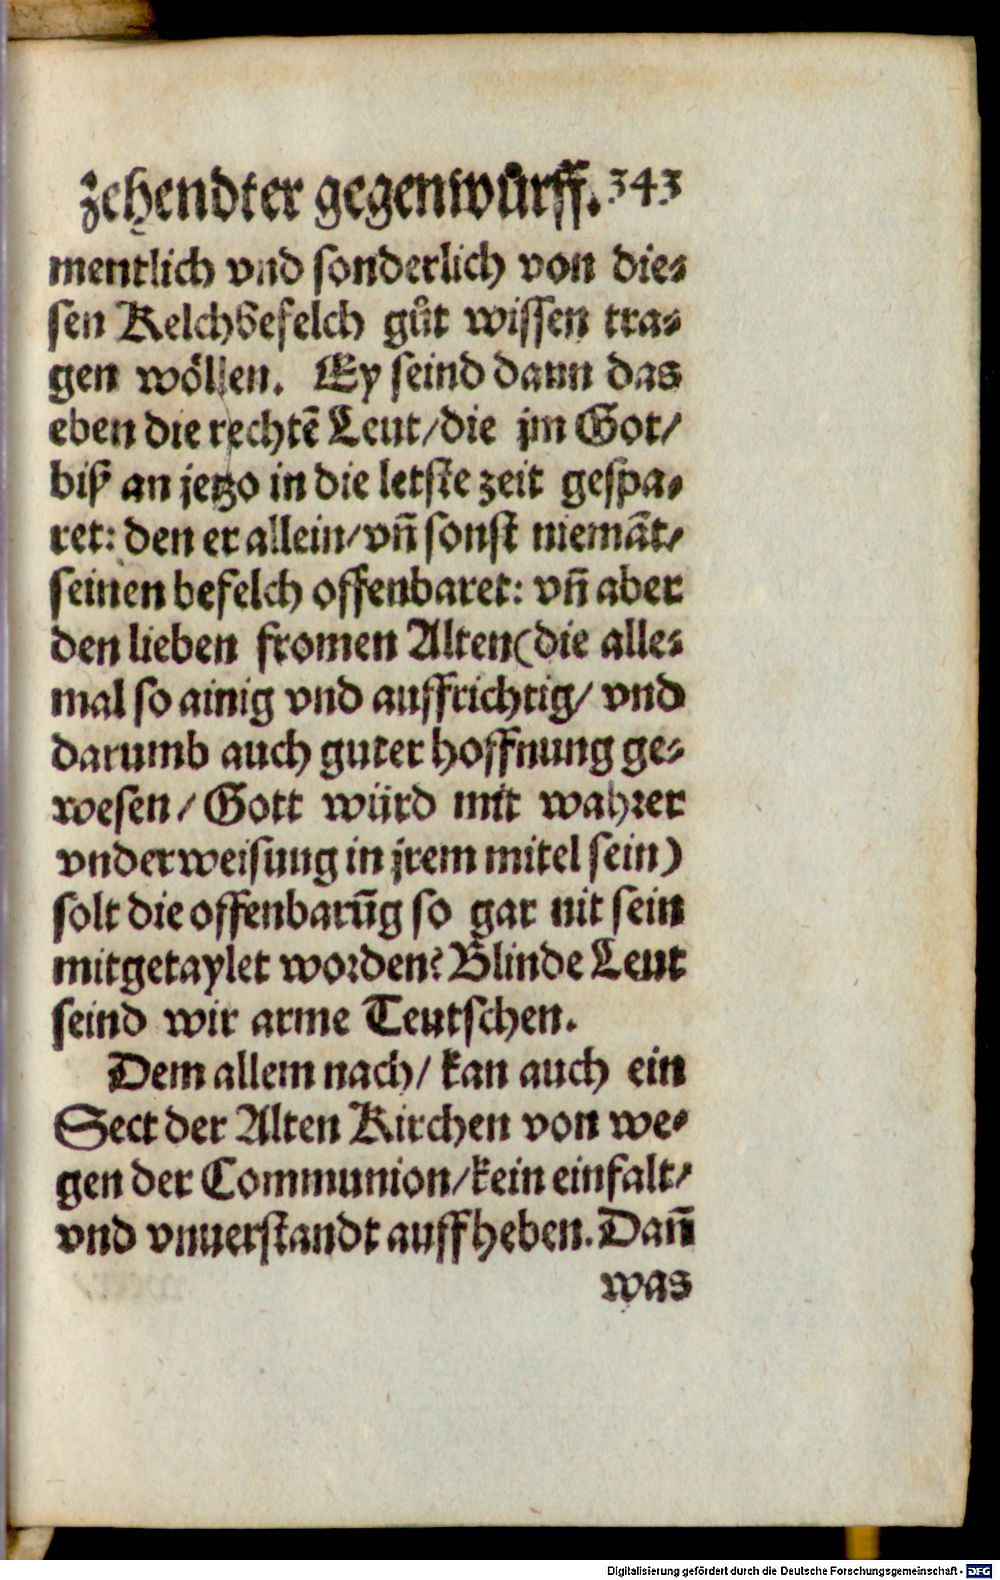 zehendter gegenwůrff. 343
mentlich vnd sonderlich von die-
sen Kelchbefelch gůt wissen tra-
gen wöllen. Ey seind dann das
eben die rechtē Leut/die jm Got/
biß an jetzo in die letste zeit gespa-
ret: den er allein/vñ sonst niemāt/
seinen befelch offenbaret: vñ aber
den lieben fromen Alten(die alle-
mal so ainig vnd auffrichtig/ vnd
darumb auch guter hoffnung ge-
wesen/ Gott würd mit wahrer
vnderweisung in jrem mitel sein)
solt die offenbarūg so gar nit sein
mitgetaylet worden? Blinde Leut
seind wir arme Teutschen.
Dem allem nach/ kan auch ein
Sect der Alten Kirchen von we-
gen der Communion/kein einfalt/
vnd vnuerstandt auffheben. Dañ
was
Digitalisierung gefördert durch die Deutsche Forschungsgemeinschaft - DFG